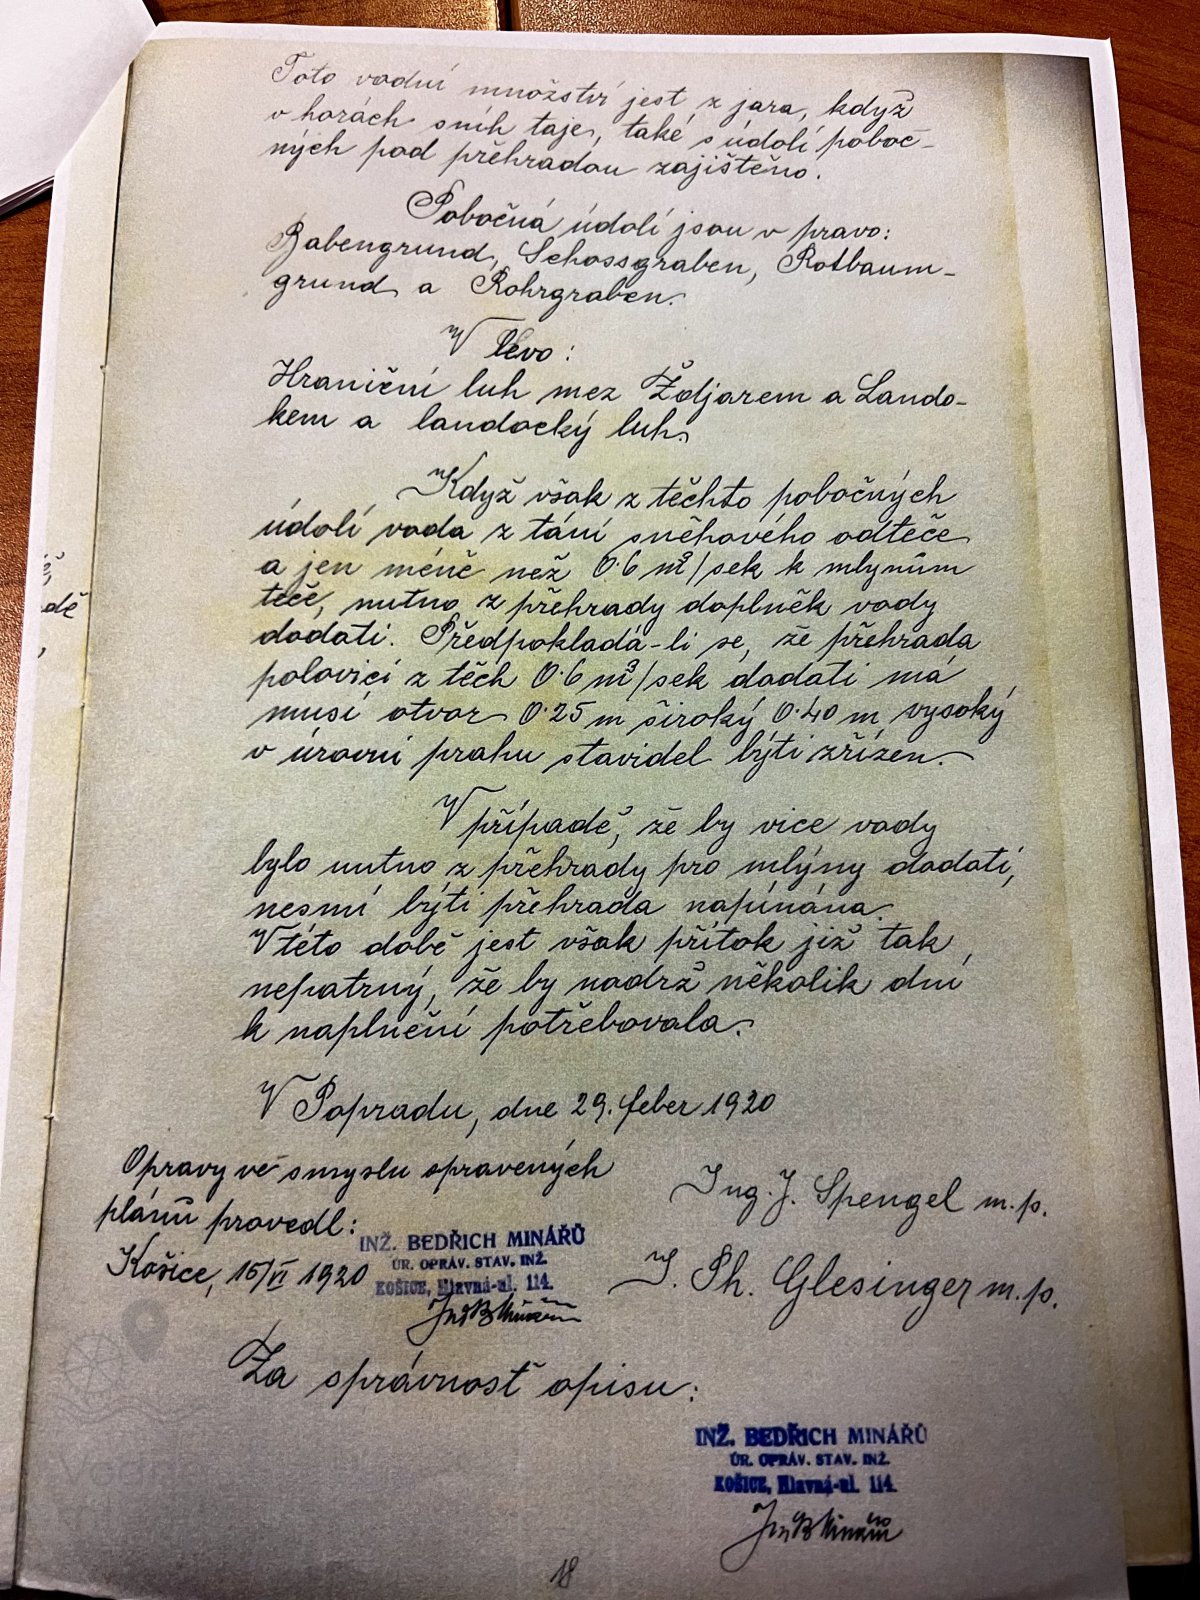 Toto vodní množství jest z jara, když
v horách sníh taje, také s údolí poboč-
ných pod přehradou zajištěno.
Pobočná údolí jsou v pravo:
Rabengrund, Schossgraben, Rotbaum-
grund a Rohrgraben.
V levo:
Hraniční luh mez Ždjarem a Lando-
kem a landocký luh.
Když však z těchto pobočných
údolí voda z tání sněhového odteče
a jen méně než 0.6 m³/sek k mlynům
teče, nutno z přehrady doplněk vody
dodati. Předpokladá-li se, že přehrada
polovici z těch 0.6 m³/sek dodati má
musí otvor 0.25 m široký 0.40 m vysoký
v úrovni prahu stavidel býti zřízen.
V případě, že by vice vody
bylo nutno z přehrady pro mlýny dodati,
nesmí býti přehrada napínána.
V této době jest však přítok již tak
nepatrný, že by nadrž několik dní
k naplnění potřebovala.
V Popradu, dne 29. feber 1920
Opravy ve smyslu spravených
plánů provedl:
Ing. J. Spengel m.p.
Košice, 15/VI 1920
INŽ. BEDŘICH MINÁŘŮ
ÚR. OPRÁV. STAV. INŽ.
KOŠICE, Hlavná-ul. 114.
J. Ph. Glesinger m.p.
Ing B Minářů
Za správnosť opisu:
INŽ. BEDŘICH MINÁŘŮ
ÚR. OPRÁV. STAV. INŽ.
KOŠICE, Hlavná-ul. 114.
Ing B Minářů
18